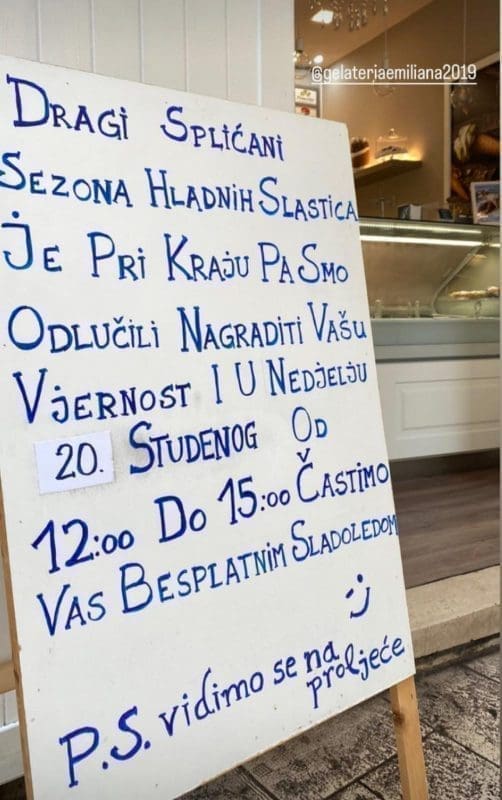 @gelaterijaemiliana2019
DRAGI SPLIĆANI
SEZONA HLADNIH SLASTICA
JE PRI KRAJU PA SMO
ODLUČILI NAGRADITI VAŠU
VJERNOST I U NEDJELJU
20. STUDENOG OD
12:00 DO 15:00 ČASTIMO
VAS BESPLATNIM SLADOLEDOM
:)
P.S. vidimo se na
proljeće